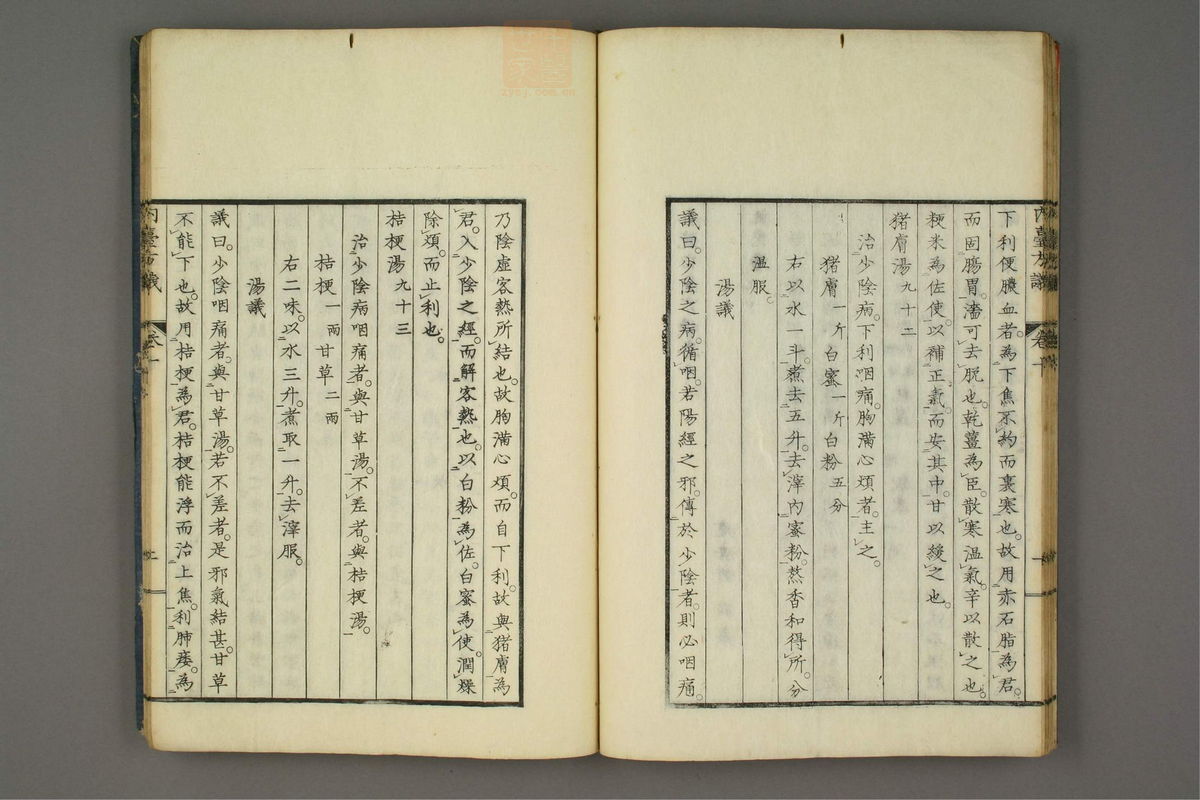 下利便膿血者。為下焦不約而裏寒也。故用赤石脂為君。
而固腸胃。濇可去脱也。乾薑為臣。散寒温氣。辛以散之也。
粳米為佐使。以補正氣。而安其中。甘以緩之也。
猪膚湯九十二
治少陰病。下利咽痛。胸滿心煩者。主之。
猪膚一斤白蜜一斤白粉五分
右以水一斗。煮去五升。去滓內蜜粉。熬香和得所。分
温服。
湯議
議曰。少陰之病。循咽。若陽經之邪。傳於少陰者。則必咽痛。
乃陰虛客熱所結也。故胸滿心煩。而自下利。故與猪膚為
君。入少陰之經。而解客熱也。以白粉為佐。白蜜為使。潤燥
除煩。而止利也。
桔梗湯九十三
治少陰病咽痛者。與甘草湯。不差者。與桔梗湯。
桔梗一兩甘草二兩
右二味。以水三升。煮取一升。去滓服。
湯議
議曰。少陰咽痛者。與甘草湯。若不差者。是邪氣結甚。甘草
不能下也。故用桔梗為君。桔梗能浮而治上焦。利肺痿。為
zysj.com.cn